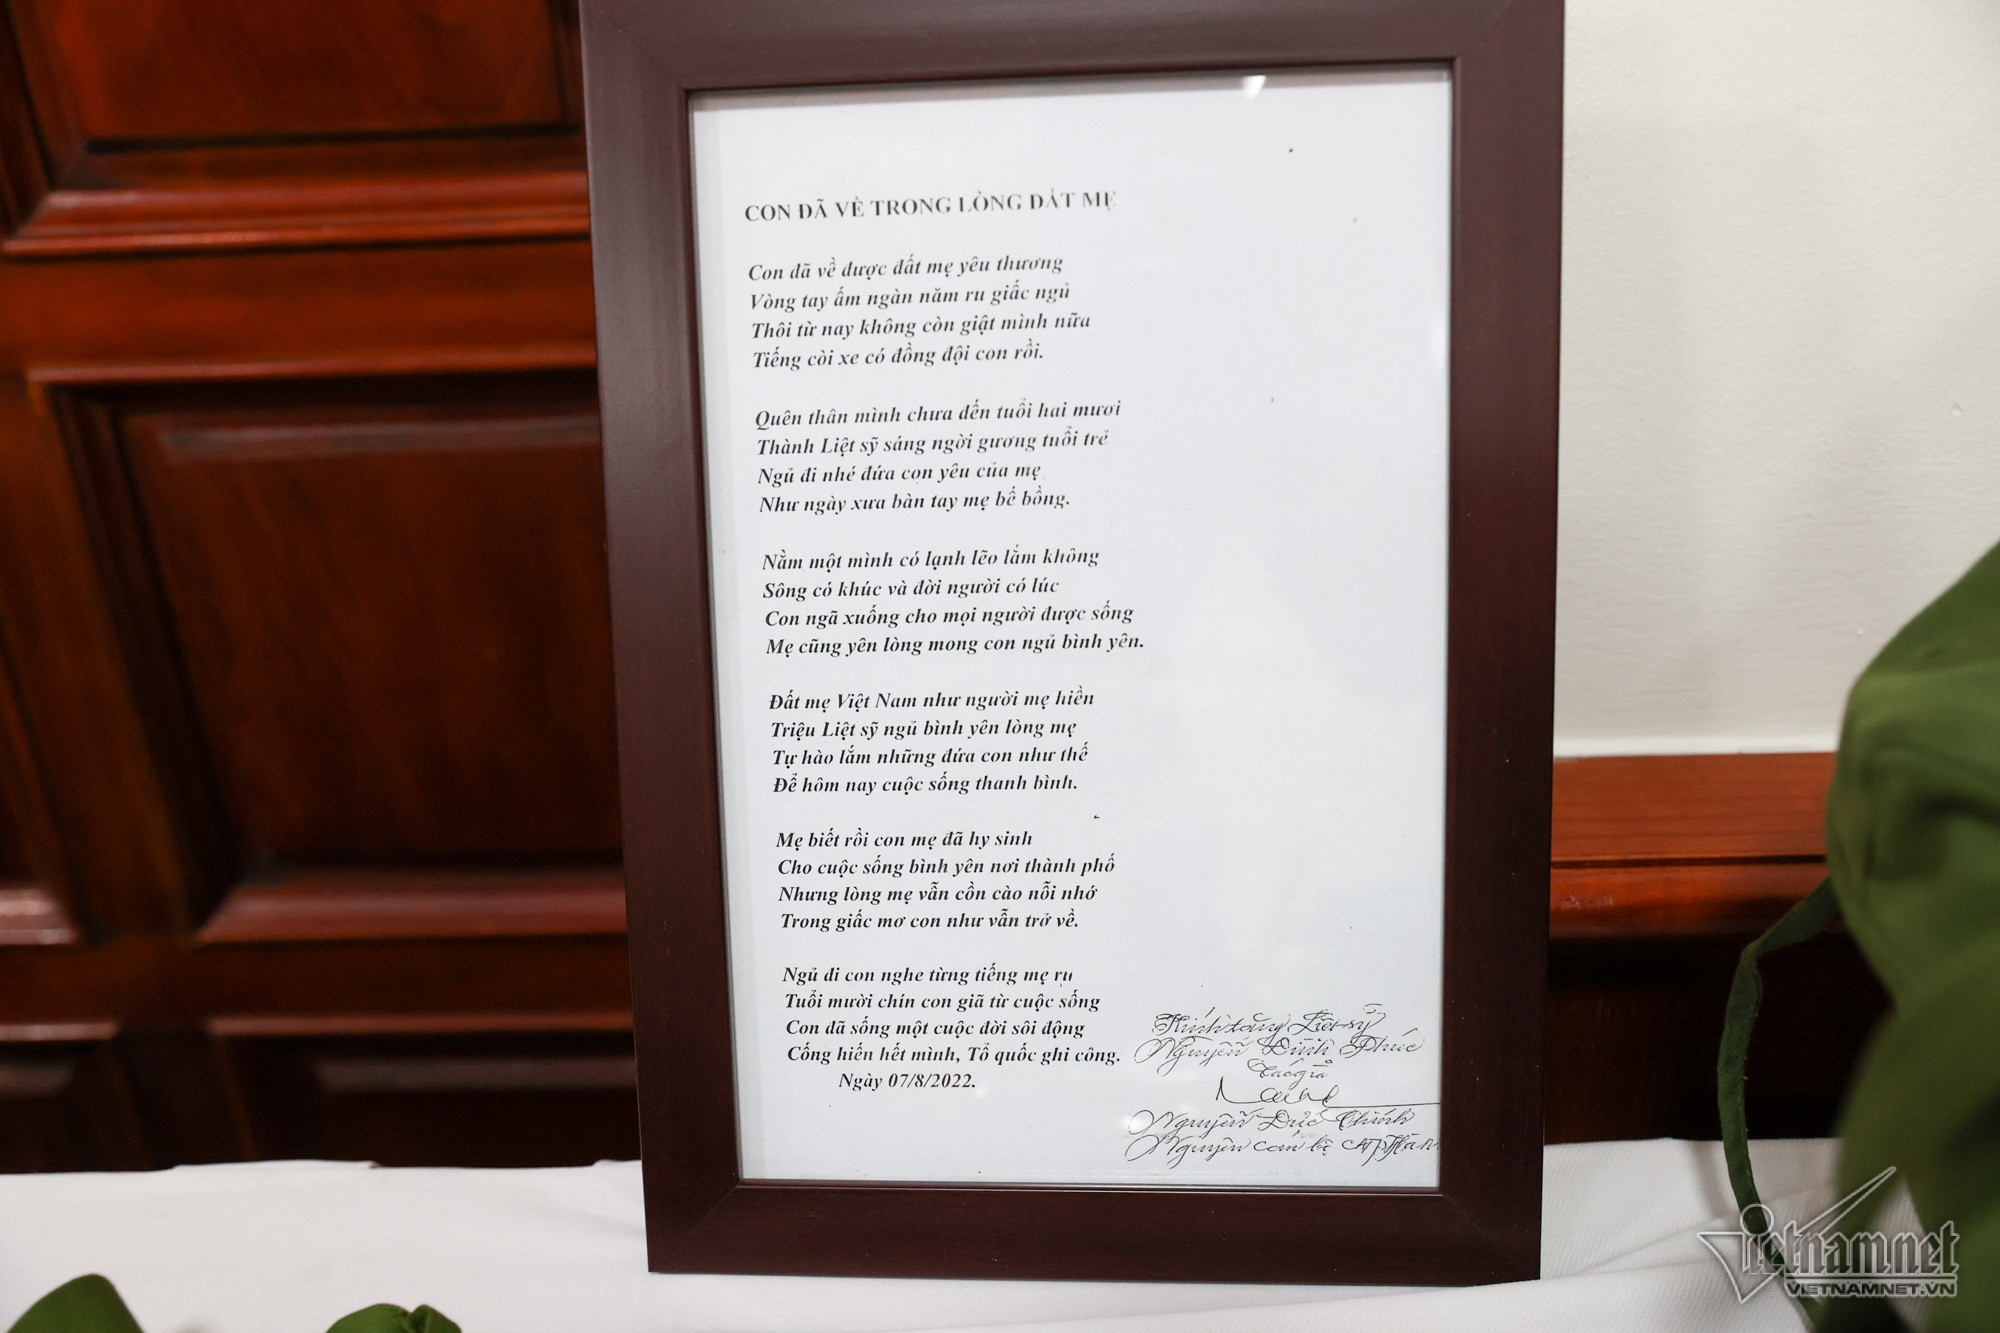 CON ĐÃ VỀ TRONG LÒNG ĐẤT MẸ
Con đã về được đất mẹ yêu thương
Vòng tay ấm ngàn năm ru giấc ngủ
Thôi từ nay không còn giật mình nữa
Tiếng còi xe có đồng đội con rồi.
Quên thân mình chưa đến tuổi hai mươi
Thành Liệt sỹ sáng ngời gương tuổi trẻ
Ngủ đi nhé đứa con yêu của mẹ
Như ngày xưa bàn tay mẹ bế bồng.
Nằm một mình có lạnh lẽo lắm không
Sông có khúc và đời người có lúc
Con ngã xuống cho mọi người được sống
Mẹ cũng yên lòng mong con ngủ bình yên.
Đất mẹ Việt Nam như người mẹ hiền
Triệu Liệt sỹ ngủ bình yên lòng mẹ
Tự hào lắm những đứa con như thế
Để hôm nay cuộc sống thanh bình.
Mẹ biết rồi con mẹ đã hy sinh
Cho cuộc sống bình yên nơi thành phố
Nhưng lòng mẹ vẫn cồn cào nỗi nhớ
Trong giấc mơ con như vẫn trở về.
Ngủ đi con nghe từng tiếng mẹ ru
Tuổi mười chín con giã từ cuộc sống
Con đã sống một cuộc đời sôi động
Cống hiến hết mình, Tổ quốc ghi công.
Ngày 07/8/2022.
Kính tặng Liệt sỹ
Nguyễn Đình Phúc
Tác giả
Nguyễn Đức Chính
Nguyên cán bộ CATP Hà N
Vietnamnet
VIETNAMNET.VN